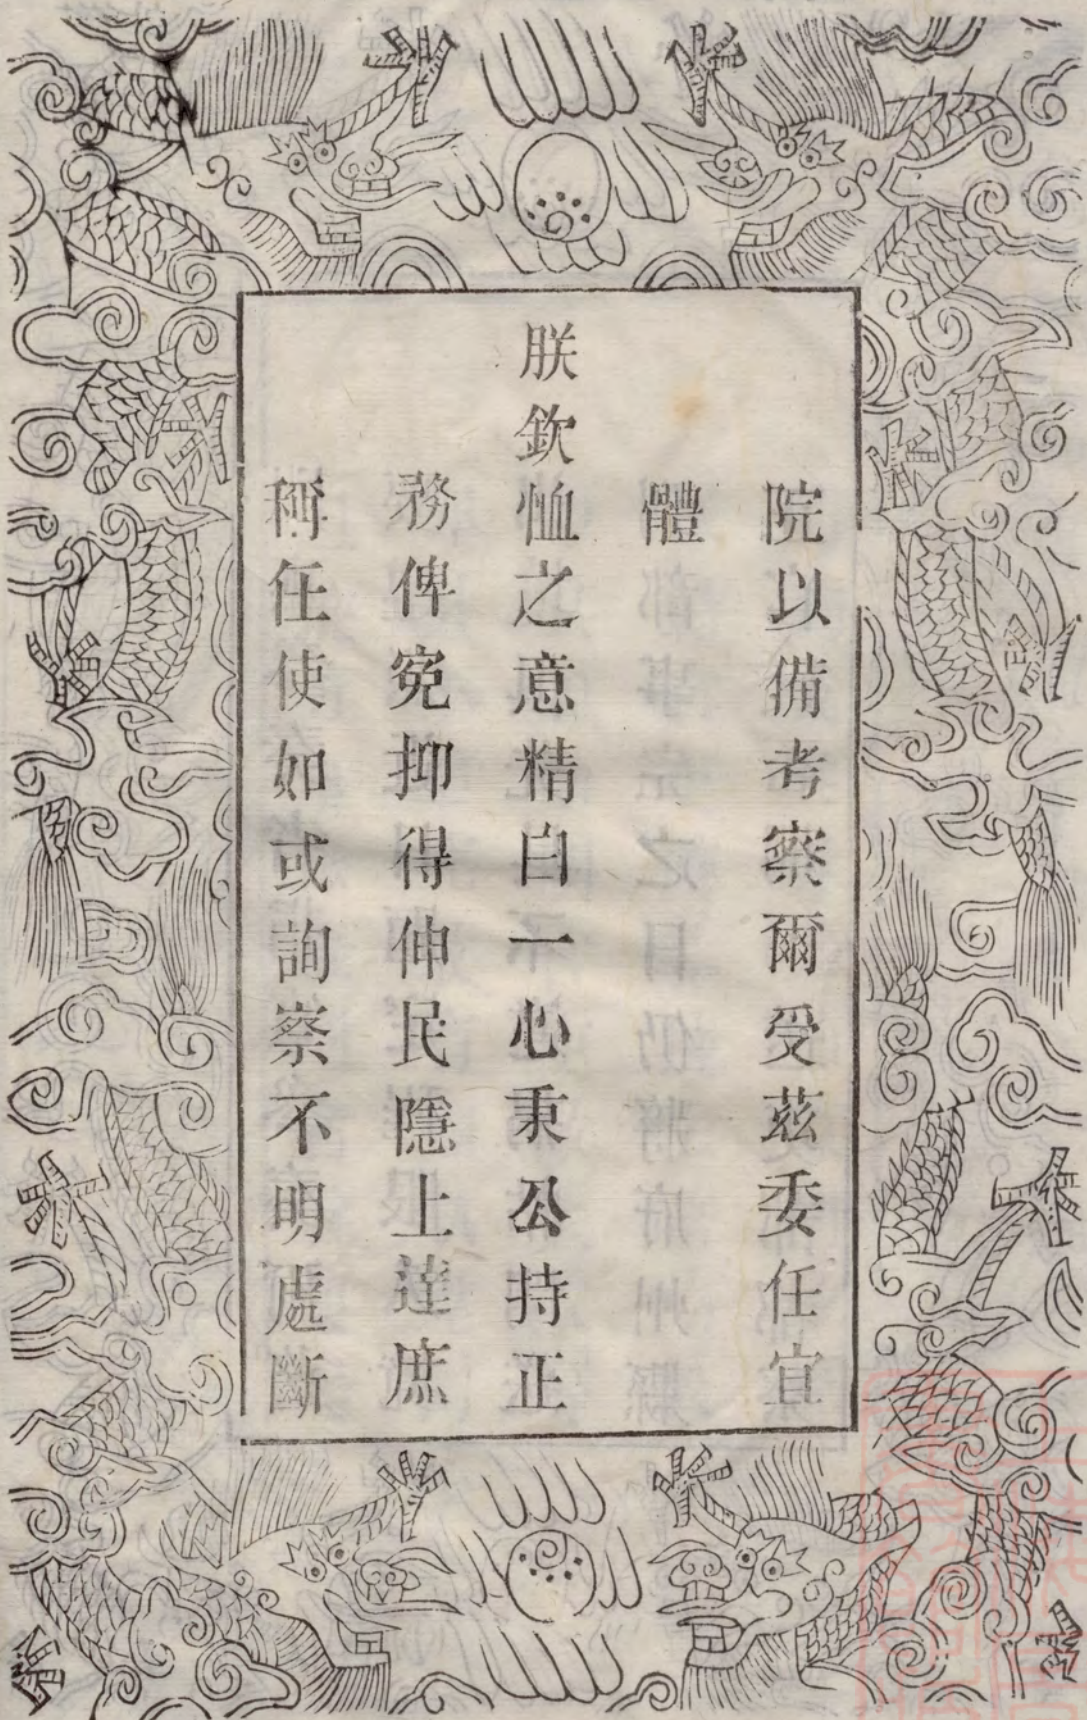 院以備考察爾受茲委任宜
體
朕欽恤之意精白一心秉公持正
務俾寃抑得伸民隱上達庶
稱任使如或詢察不明處斷